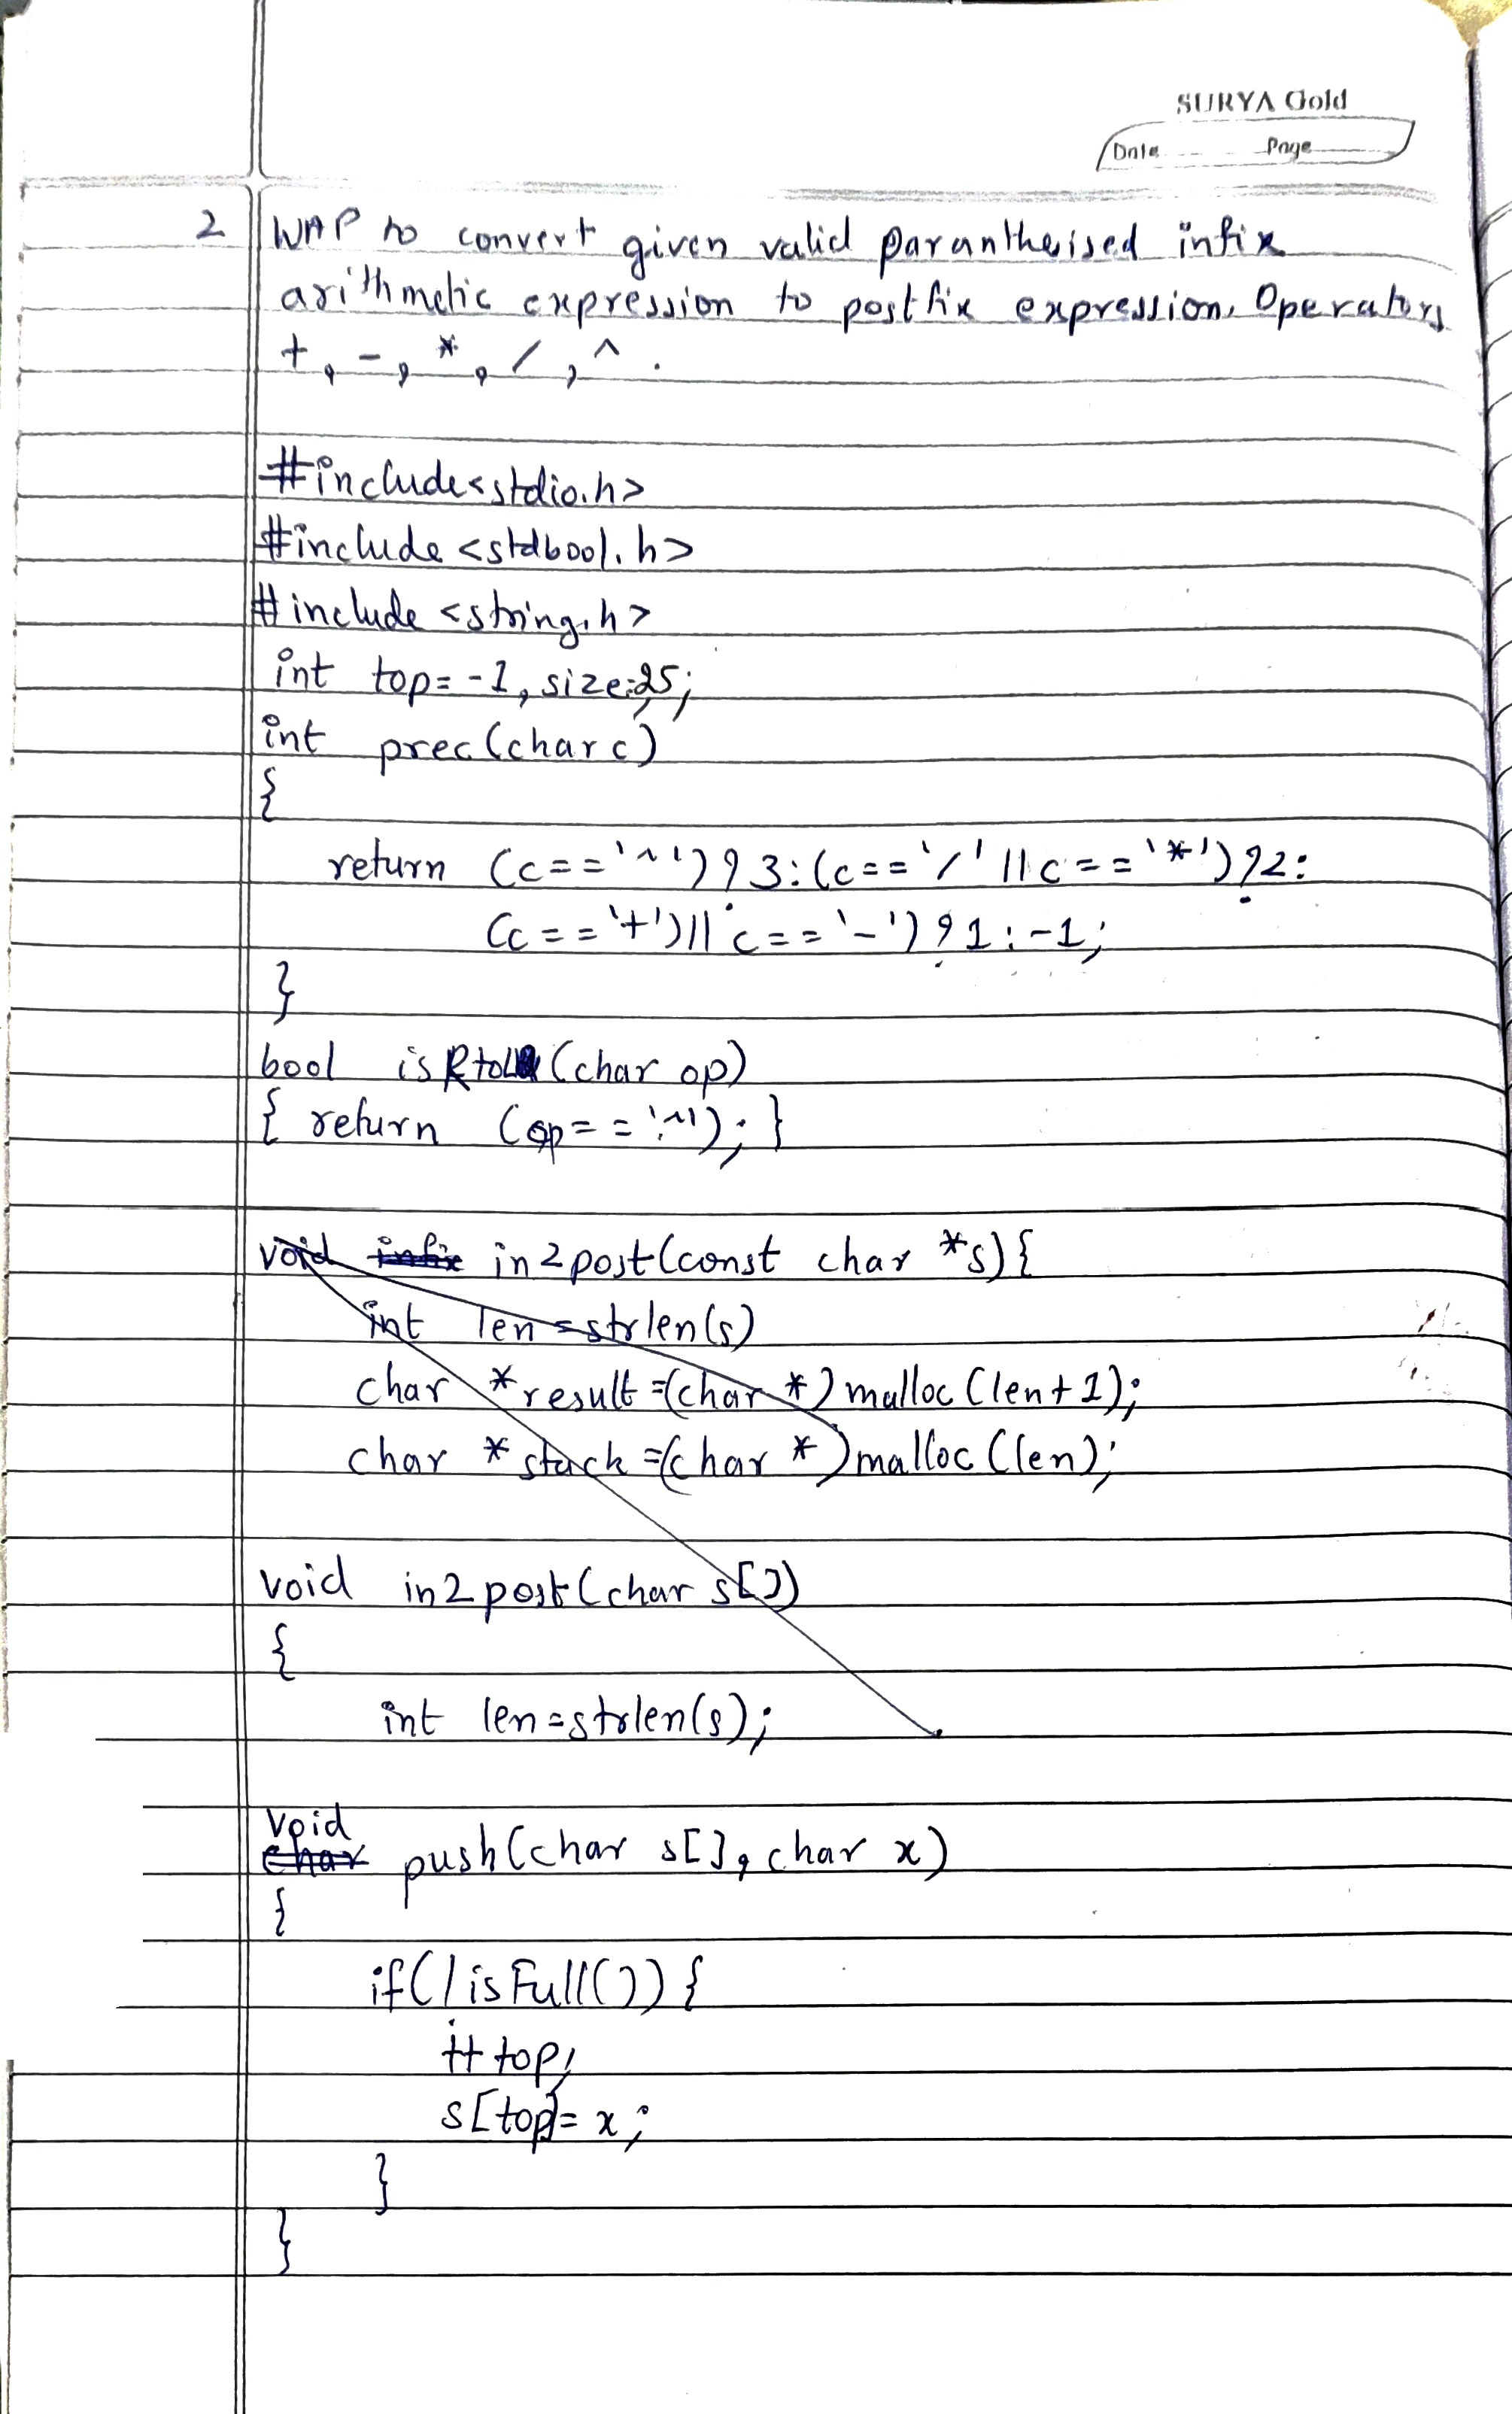 SURYA Gold
Date Page
2 WAP to convert given valid parantheised infix
arithmetic expression to postfix expression. Operators
+, -, *, /, ^.
#include<stdio.h>
#include <stdbool.h>
#include <string.h>
int top=-1, size=25;
int prec(char c)
{
return (c=='^')?3:(c=='/'||c=='*')?2:
(c=='+')||c=='-')?1:-1;
}
bool isRtoL(char op)
{ return (op=='^'); }
void infix in2post(const char *s){
int len=strlen(s)
char *result=(char *)malloc(len+1);
char *stack=(char *)malloc(len);
void in2post(char s[])
{
int len=strlen(s);
void
char push(char s[], char x)
{
if(!isFull()){
++top;
s[top]=x;
}
}